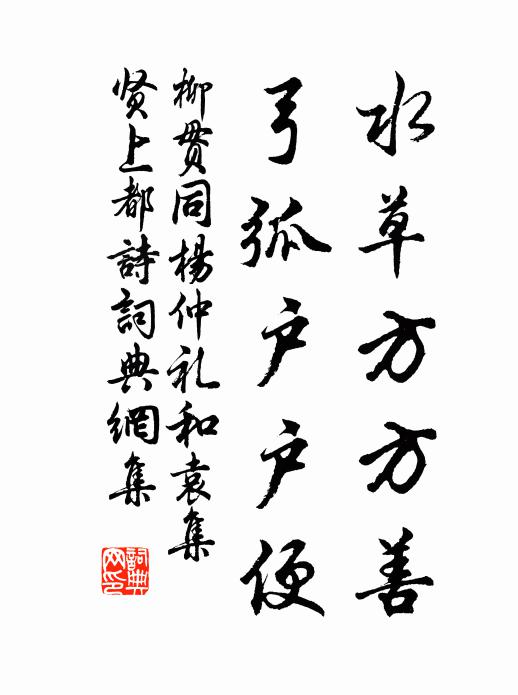 水草方方善
弓弧户户便
柳贯同楊仲礼和袁集
贤上都詩詞典網集
詞典網印